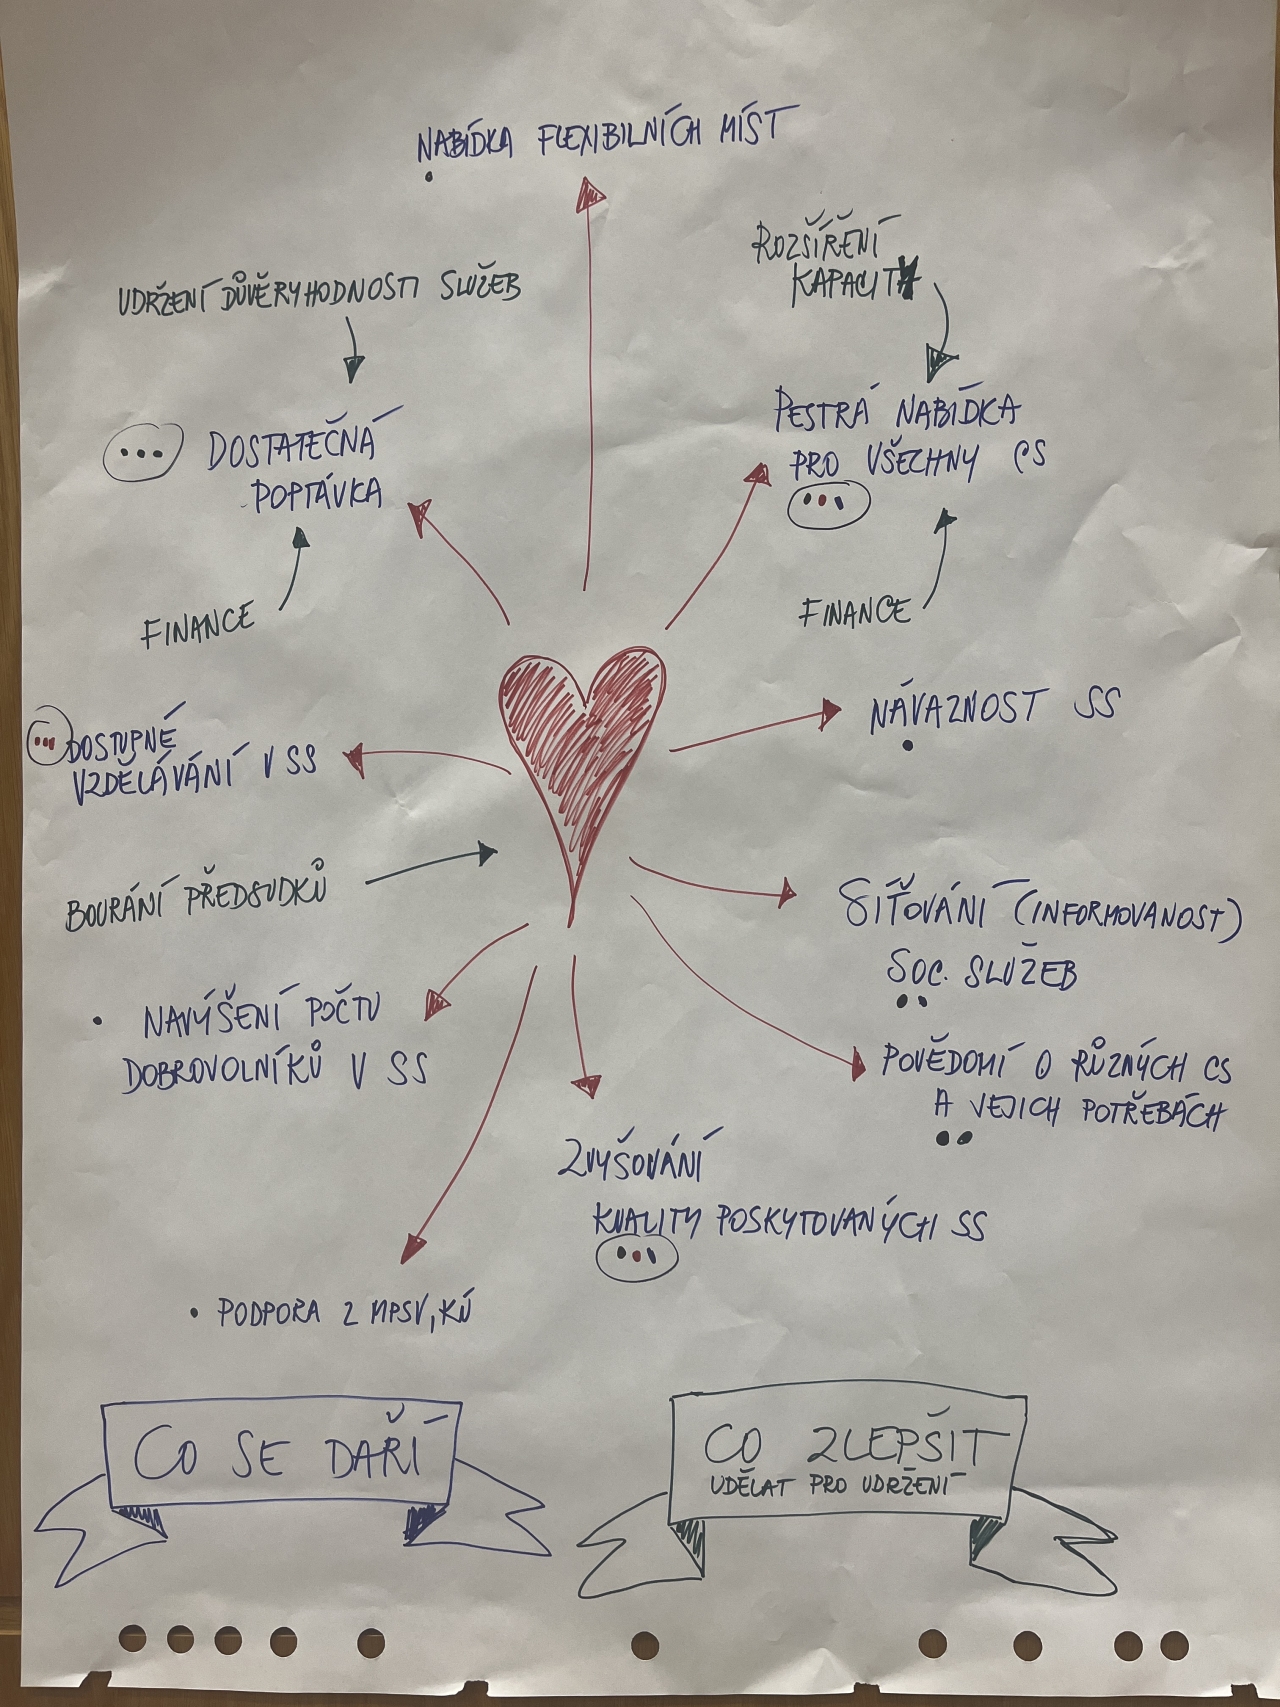 NABÍDKA FLEXIBILNÍCH MÍST
ROZŠÍŘENÍ
KAPACIT
UDRŽENÍ DŮVĚRYHODNOSTI SLUŽEB
DOSTATEČNÁ
POPTÁVKA
PESTRÁ NABÍDKA
PRO VŠECHNY CS
FINANCE
FINANCE
NÁVAZNOST SS
DOSTUPNÉ
VZDĚLÁVÁNÍ V SS
BOURÁNÍ PŘEDSUDKŮ
SÍŤOVÁNÍ (INFORMOVANOST)
SOC. SLUŽEB
• NAVÝŠENÍ POČTU
DOBROVOLNÍKŮ V SS
POVĚDOMÍ O RŮZNÝCH CS
A JEJICH POTŘEBÁCH
ZVYŠOVÁNÍ
KVALITY POSKYTOVANÝCH SS
• PODPORA Z MPSV, KÚ
CO SE DAŘÍ
CO ZLEPŠIT
UDĚLAT PRO UDRŽENÍ